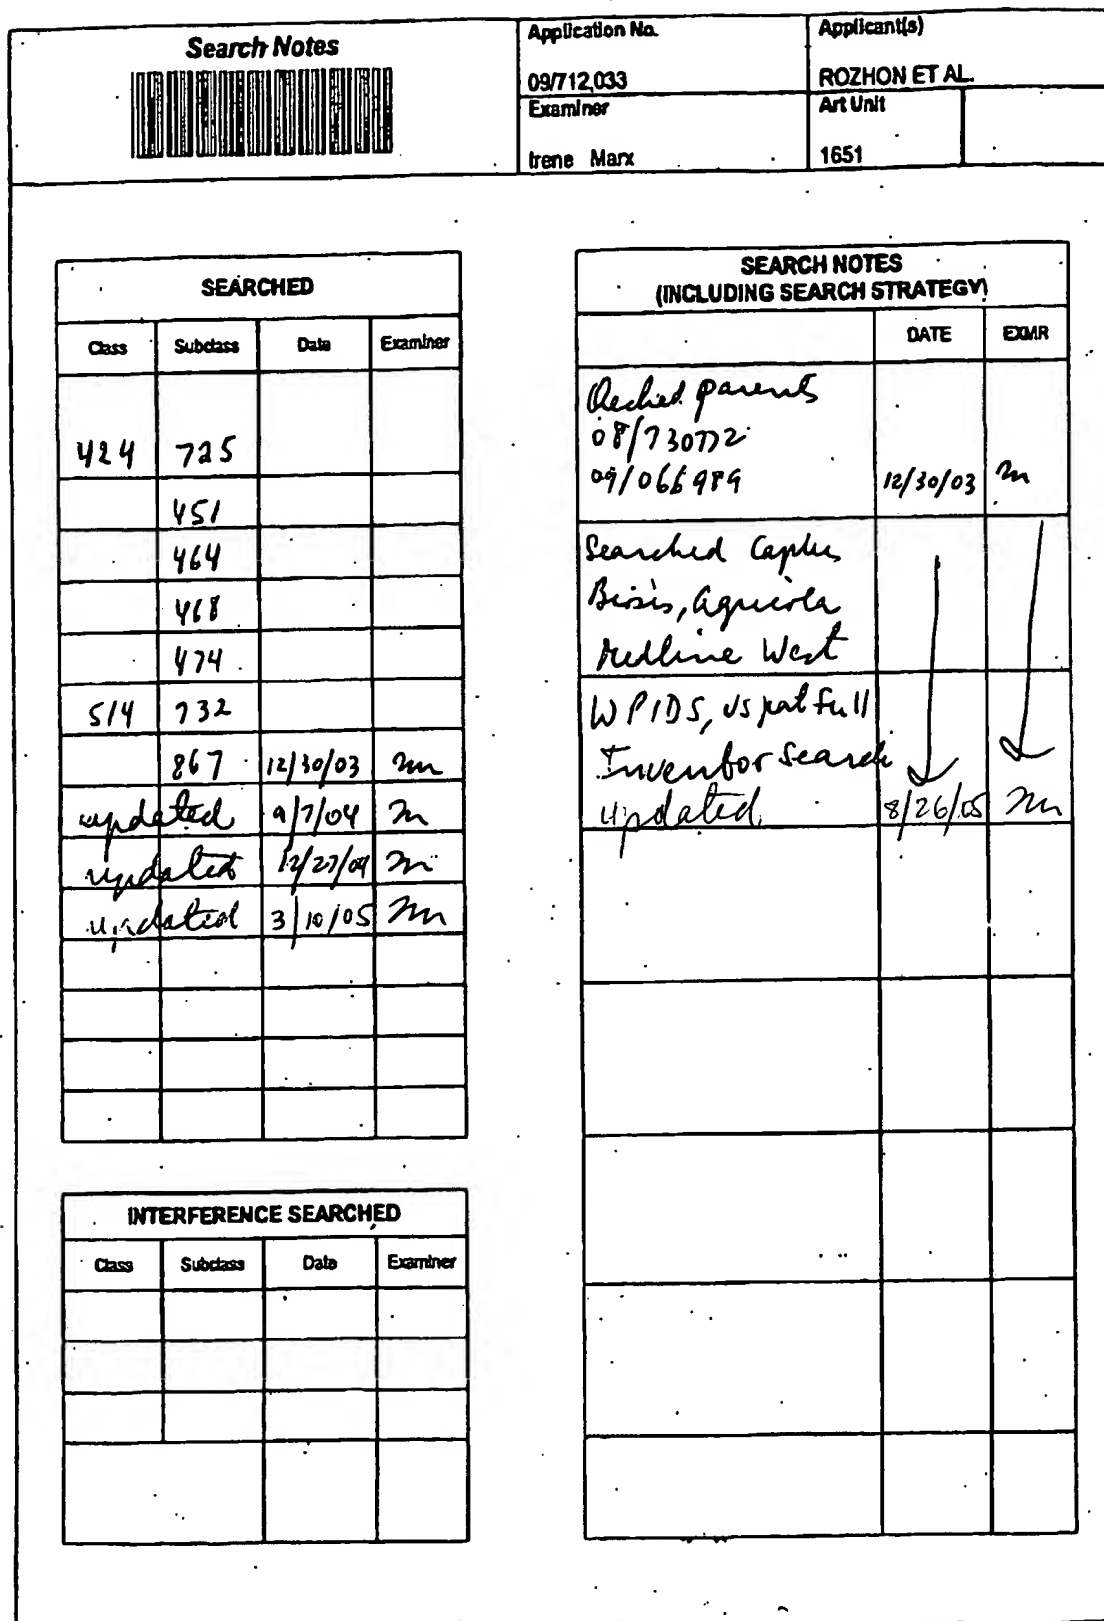 Search Notes
Application No.
09/712,033
Applicant(s)
ROZHON ET AL.
Examiner
Irene Marx
Art Unit
1651
SEARCHED
Class Subclass Date Examiner
424 725
451
464
468
474
514 732
867 12/30/03 m
updated 9/7/04 m
updated 12/27/04 m
updated 3/10/05 m
INTERFERENCE SEARCHED
Class Subclass Date Examiner
SEARCH NOTES
(INCLUDING SEARCH STRATEGY)
DATE EXMR
Checked parents
08/730772
09/066989 12/30/03 m
Searched Caplus
Biosis, Agricola
Medline West
WPIDS, US pat full
Inventor search
updated 8/26/05 m